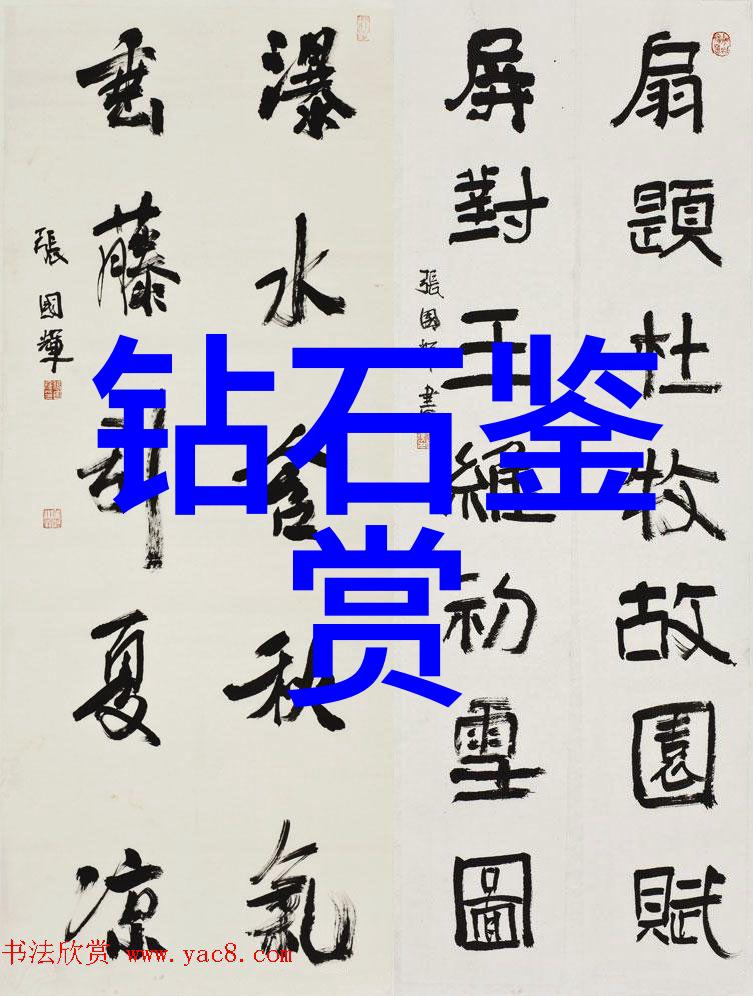 扇題杜牧故園賦
屏對王維初雪圖
張國輝書
瀑水含秋氣
垂藤引夏凉
張國輝
钻石鉴
赏
书法欣赏 www.yac8.com